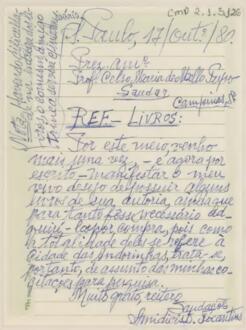 CMP 2.1.5.126
S. Paulo, 17/outº/80.
Prez. amº
Prof. Celso Maria de Mello Pupo
Saudar
Campinas, SP
REF - LIVROS:
Por este meio, venho
mais uma vez, - e agora por
escrito - manifestar o meu
vivo desejo de possuir alguns
livros de sua autoria, ainda que
para tanto fosse necessário ad-
quiri-los por compra, pois como
a totalidade deles se refere à
Cidade das Andorinhas, trata-se,
portanto, de assunto das minhas co-
gitações para pesquisa.
Muito grato, reitero
Saudações